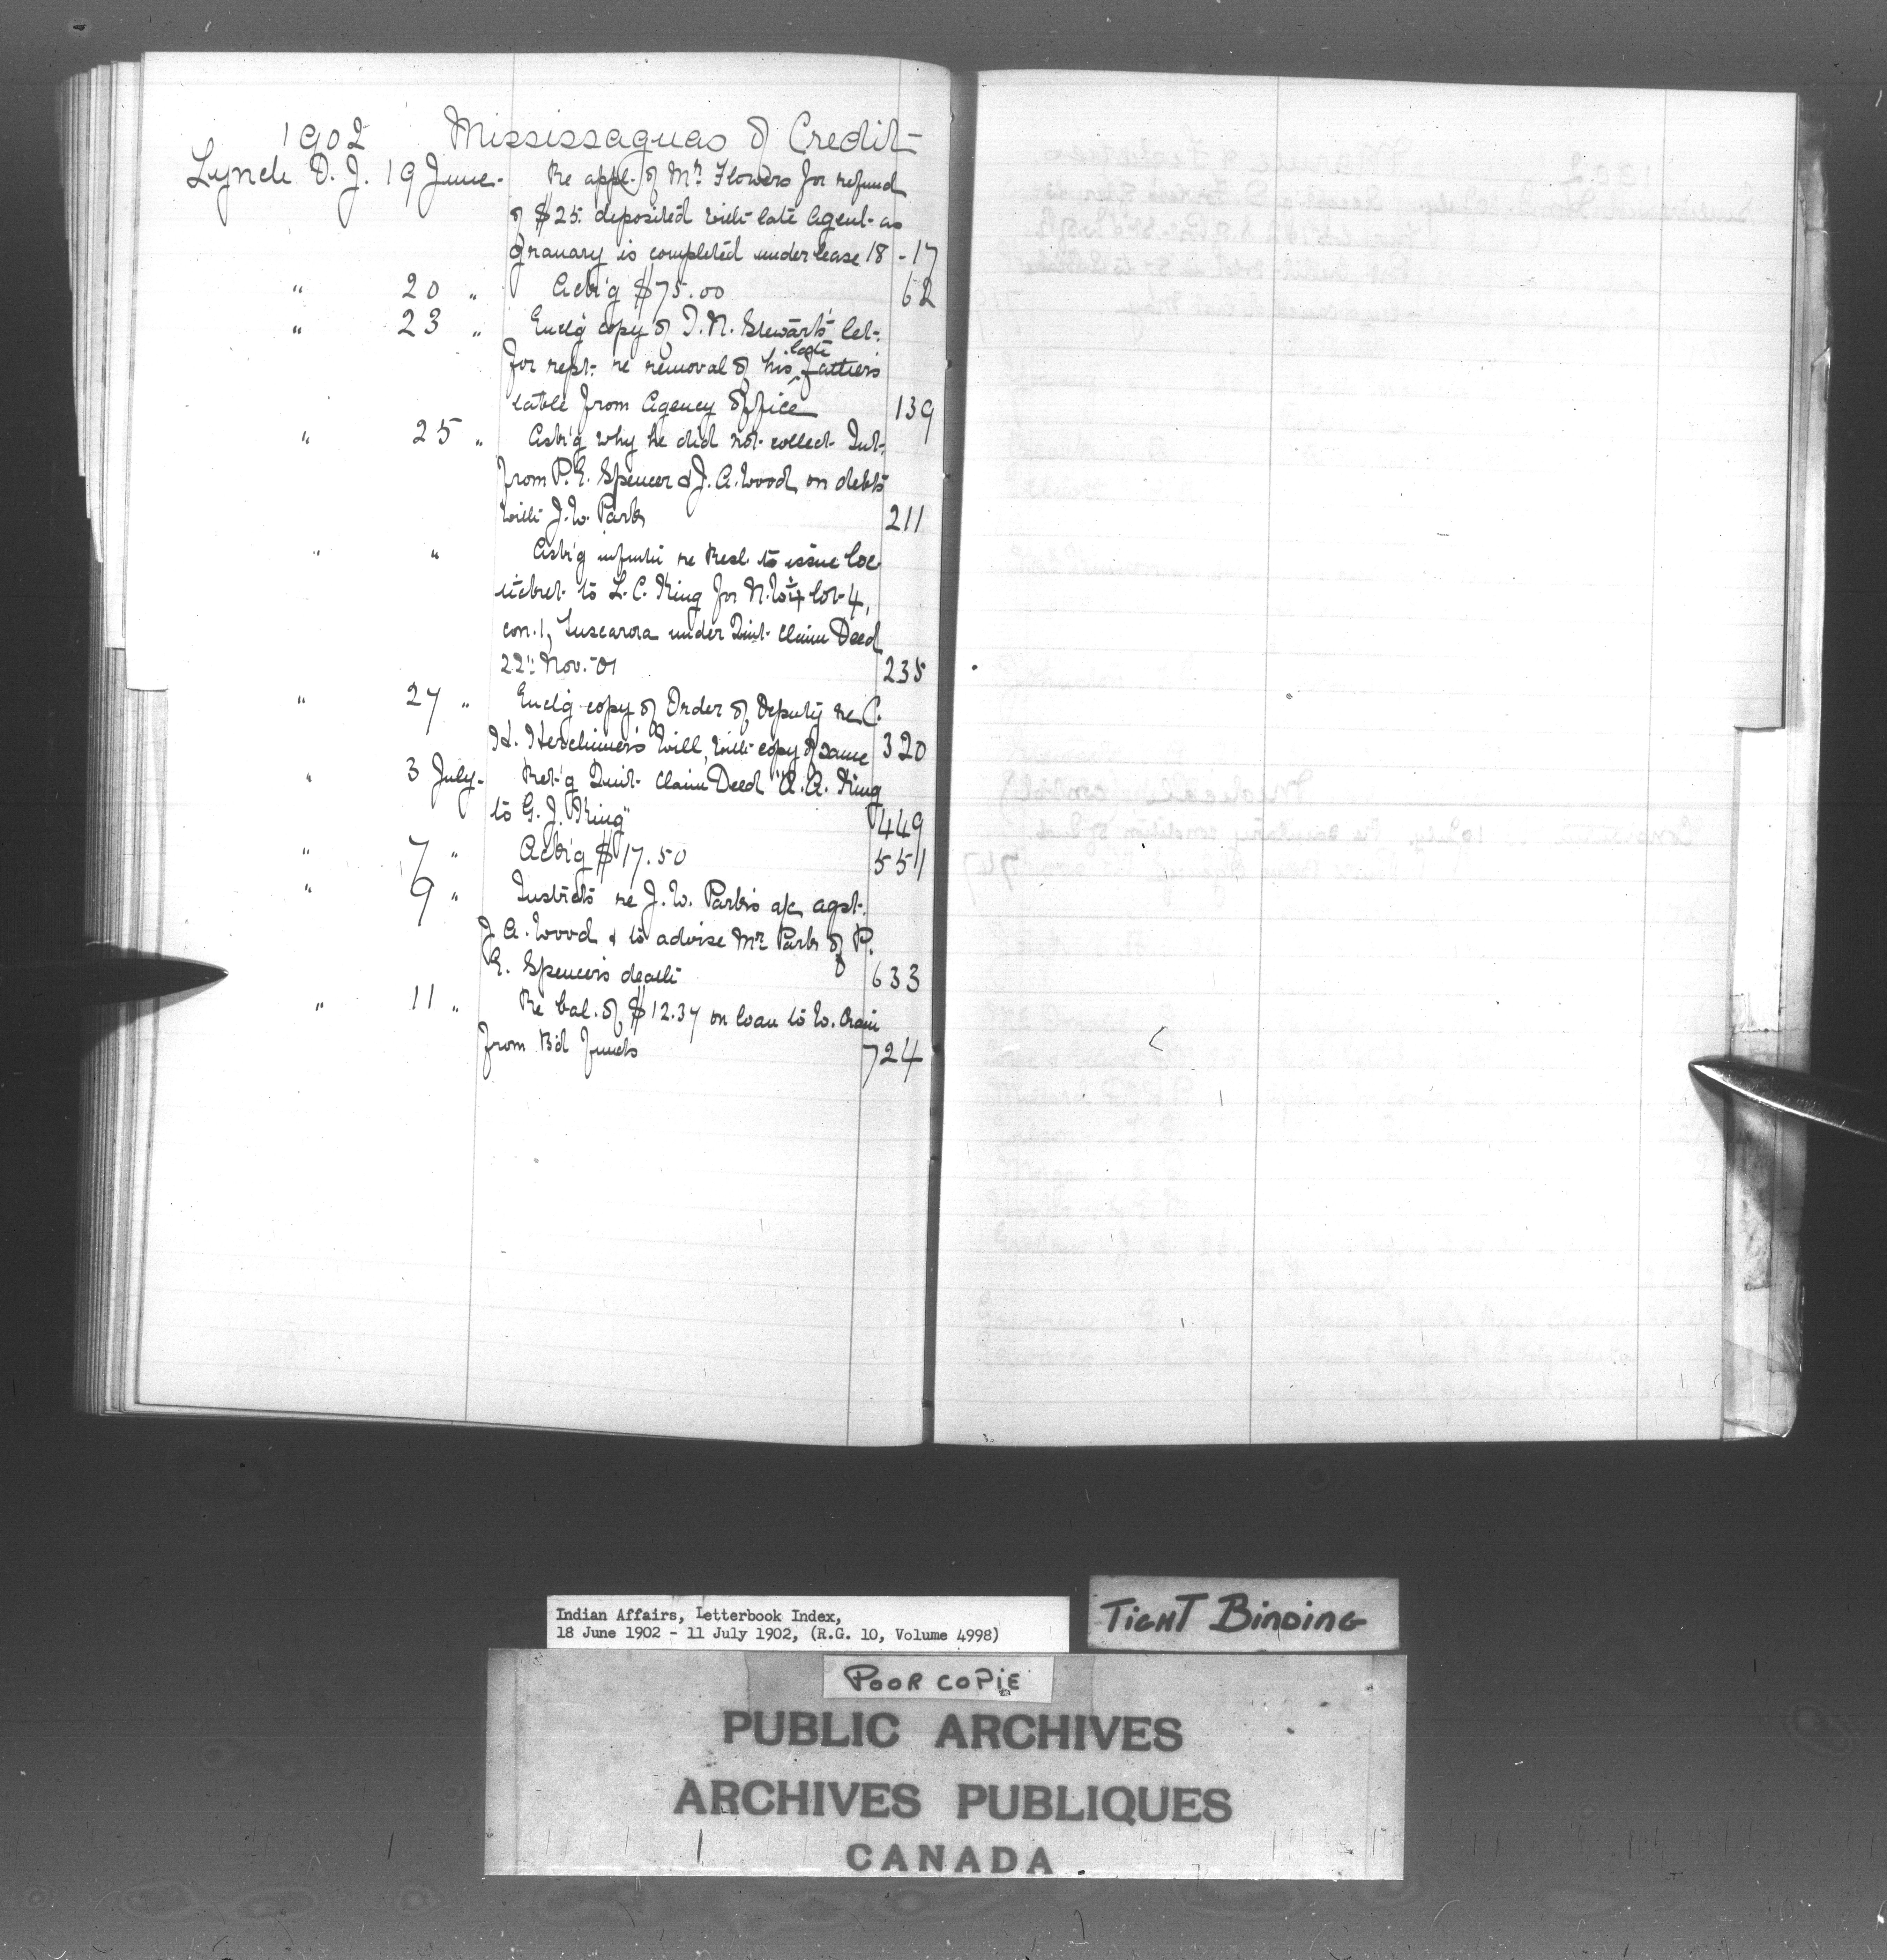 1902 Mississaguas of Credit
Lynch D. J. 19 June. Re appl. of Mr. Flowers for refund
of $25. deposited with late Agent as
granary is completed under lease 18 - 17
" 20 " Ack'g $75.00 62
" 23 " Encl'g copy of T. N. Stewart's let.
for rept. re removal of his late father's
table from Agency Office 139
" 25 " Ask'g why he did not collect Int.
from P. E. Spencer & J. A. Wood, on debts
with J. W. Park 211
" " Ask'g infmtn re Resl. to issue loc.
ticket to L. C. King for N.W ¼ lot 4,
con. 1, Tuscarora under Quit Claim Deed
22" Nov. - 01 235
" 27 " Encl'g copy of Order of Deputy re C.
H. Herchimer's Will, with copy of same 320
" 3 July. Ret'g Quit Claim Deed "A. A. King
to G. J. King" 449
" 7 " Ack'g $17.50 551
" 9 " Instrcts re J. W. Park's a/c agst.
J. A. Wood & to advise Mr. Park of P.
E. Spencer's death 633
" 11 " Re bal. of $12.37 on loan to W. Crain
from B'd funds 724
Indian Affairs, Letterbook Index,
18 June 1902 - 11 July 1902, (R.G. 10, Volume 4998)
TIGHT BINDING
POOR COPIE
PUBLIC ARCHIVES
ARCHIVES PUBLIQUES
CANADA